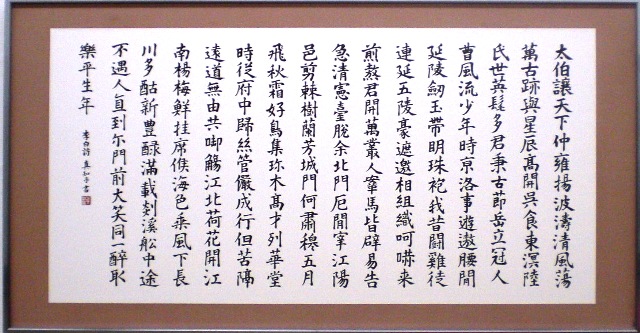 太伯讓天下仲雍揚波濤清風蕩
萬古跡與星辰髙開吳食東溟陸
氏世英髦多君秉古節岳立冠人
曹風流少年時京洛事遊遨腰間
延陵劒玉帶明珠袍我昔鬪雞徒
連延五陵豪遮邀相組織呵嚇来
煎熬君開萬叢人鞌馬皆辟易告
急清憲臺脫余北門厄間宰江陽
邑剪棘樹蘭芳城門何肅穆五月
飛秋霜好鳥集珎木髙才列華堂
時從府中歸絲管儼成行但苦隔
遠道無由共啣觴江北荷花開江
南楊梅鮮挂席候海色乗風下長
川多酤新豊醁滿載剡溪船中途
不遇人直到尓門前大笑同一醉取
樂平生年
李白詩